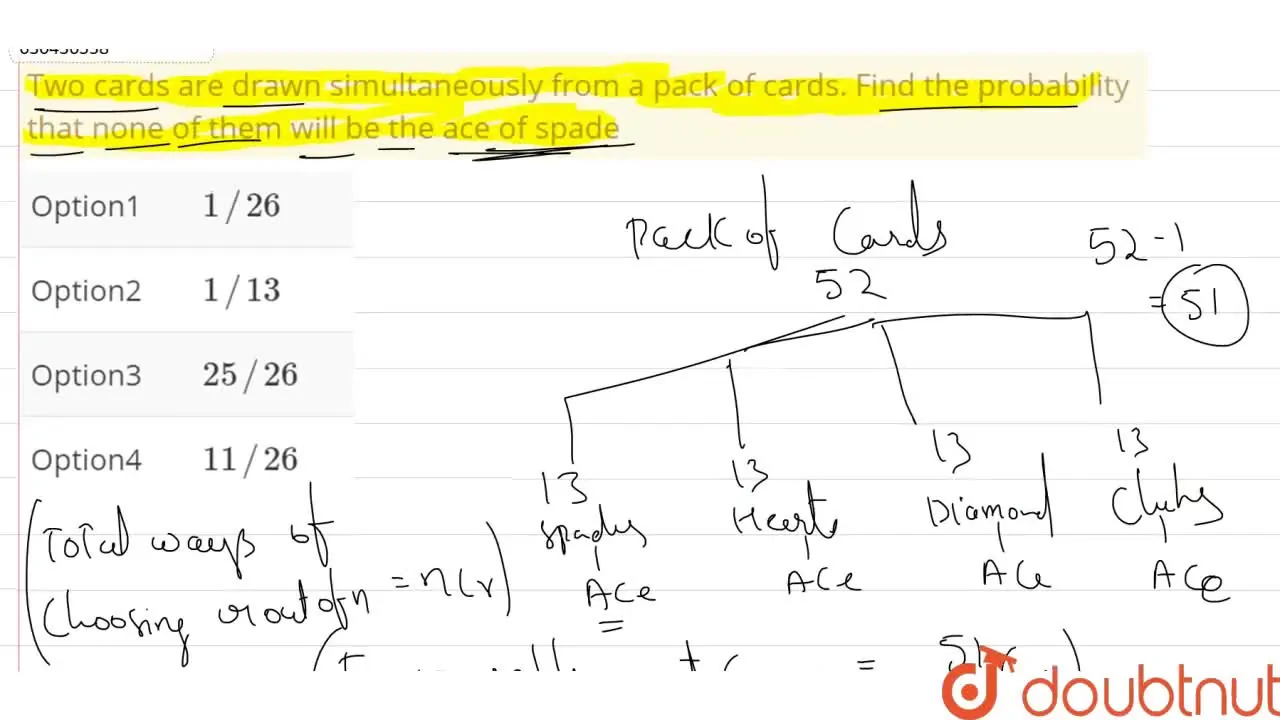 Two cards are drawn simultaneously from a pack of cards. Find the probability
that none of them will be the ace of spade
Option1 1/26
Option2 1/13
Option3 25/26
Option4 11/26
Pack of Cards
52
52-1
= 51
13 13 13 13
Spades Hearts Diamond Clubs
Ace Ace Ace Ace
(Total ways of
choosing r out of n = nCr)
= 51C
doubtnut